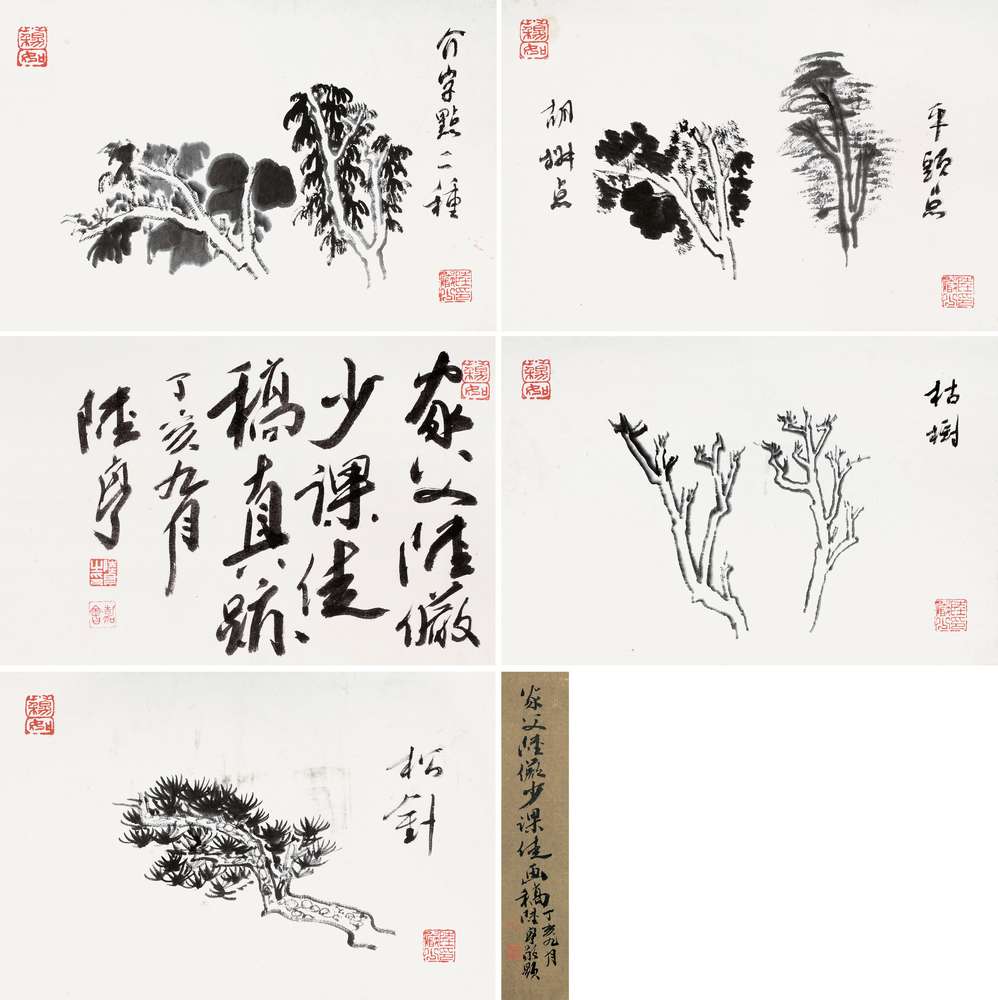 介字點二種
平頭点
胡椒点
家父陸儼
少課徒
稿真跡
丁亥九月
陸亨
枯樹
松針
家父陸儼少課徒画稿
丁亥九月
陸亨敬題